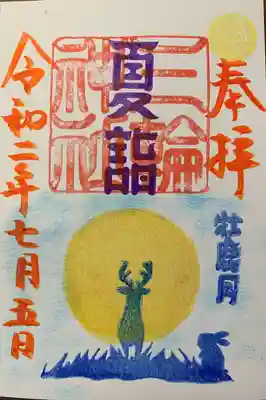 奉拝
三輪
神社
夏詣
牡鹿月
令和二年七月五日